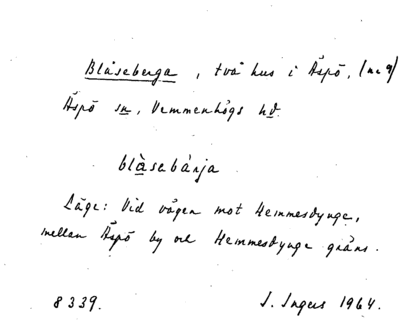 Blåseberga, två hus i Äspö, (nr 9)
Äspö sn, Vemmenhögs hd.
blàsebánja
Läge: Vid vägen mot Hemmesdynge,
mellan Äspö by och Hemmesdynge gräns.
8339. I. Ingers 1964.